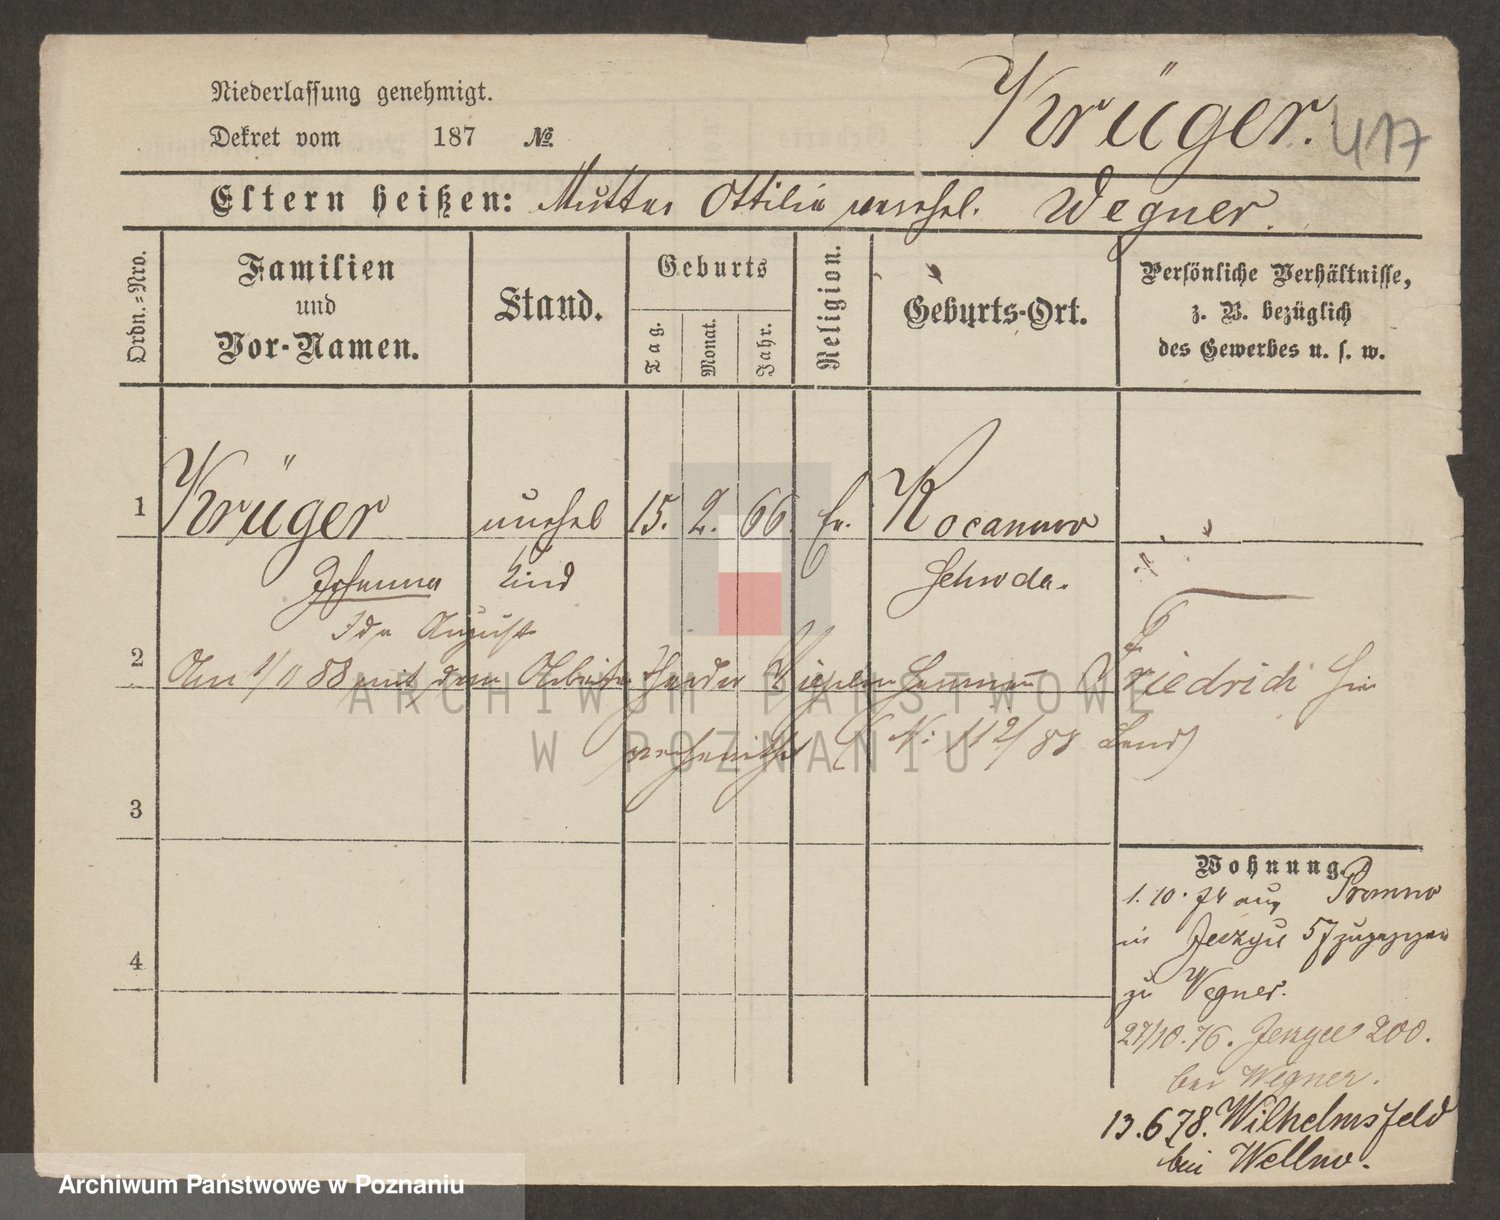 Niederlassung genehmigt.
Krüger. 417
Dekret vom 187 №
Eltern heißen: Mutter Ottilie verehel. Wegner.
Ordn.=Nro.
Familien
und
Vor-Namen.
Stand.
Geburts
Tag.
Monat.
Jahr.
Religion.
Geburts-Ort.
Persönliche Verhältnisse,
z. B. bezüglich
des Gewerbes u. s. w.
1 Krüger unehel 15. 2. 66. Ev. Kocanowo
Johanna Kind Schroda.
Ida August
2 Am 88 mit dem Arbeiter Hermann Friedrich
verheirathet (N: 112/88)
3
Wohnung.
1. 10. 74 aus Promno
in Jerzyce 57 zugezogen
4
zu Wegner.
27/10. 76. Jerzyce 200.
bei Wegner.
13. 6 78. Wilhelmsfeld
bei Wellno.
ARCHIWUM PAŃSTWOWE
W POZNANIU
Archiwum Państwowe w Poznaniu